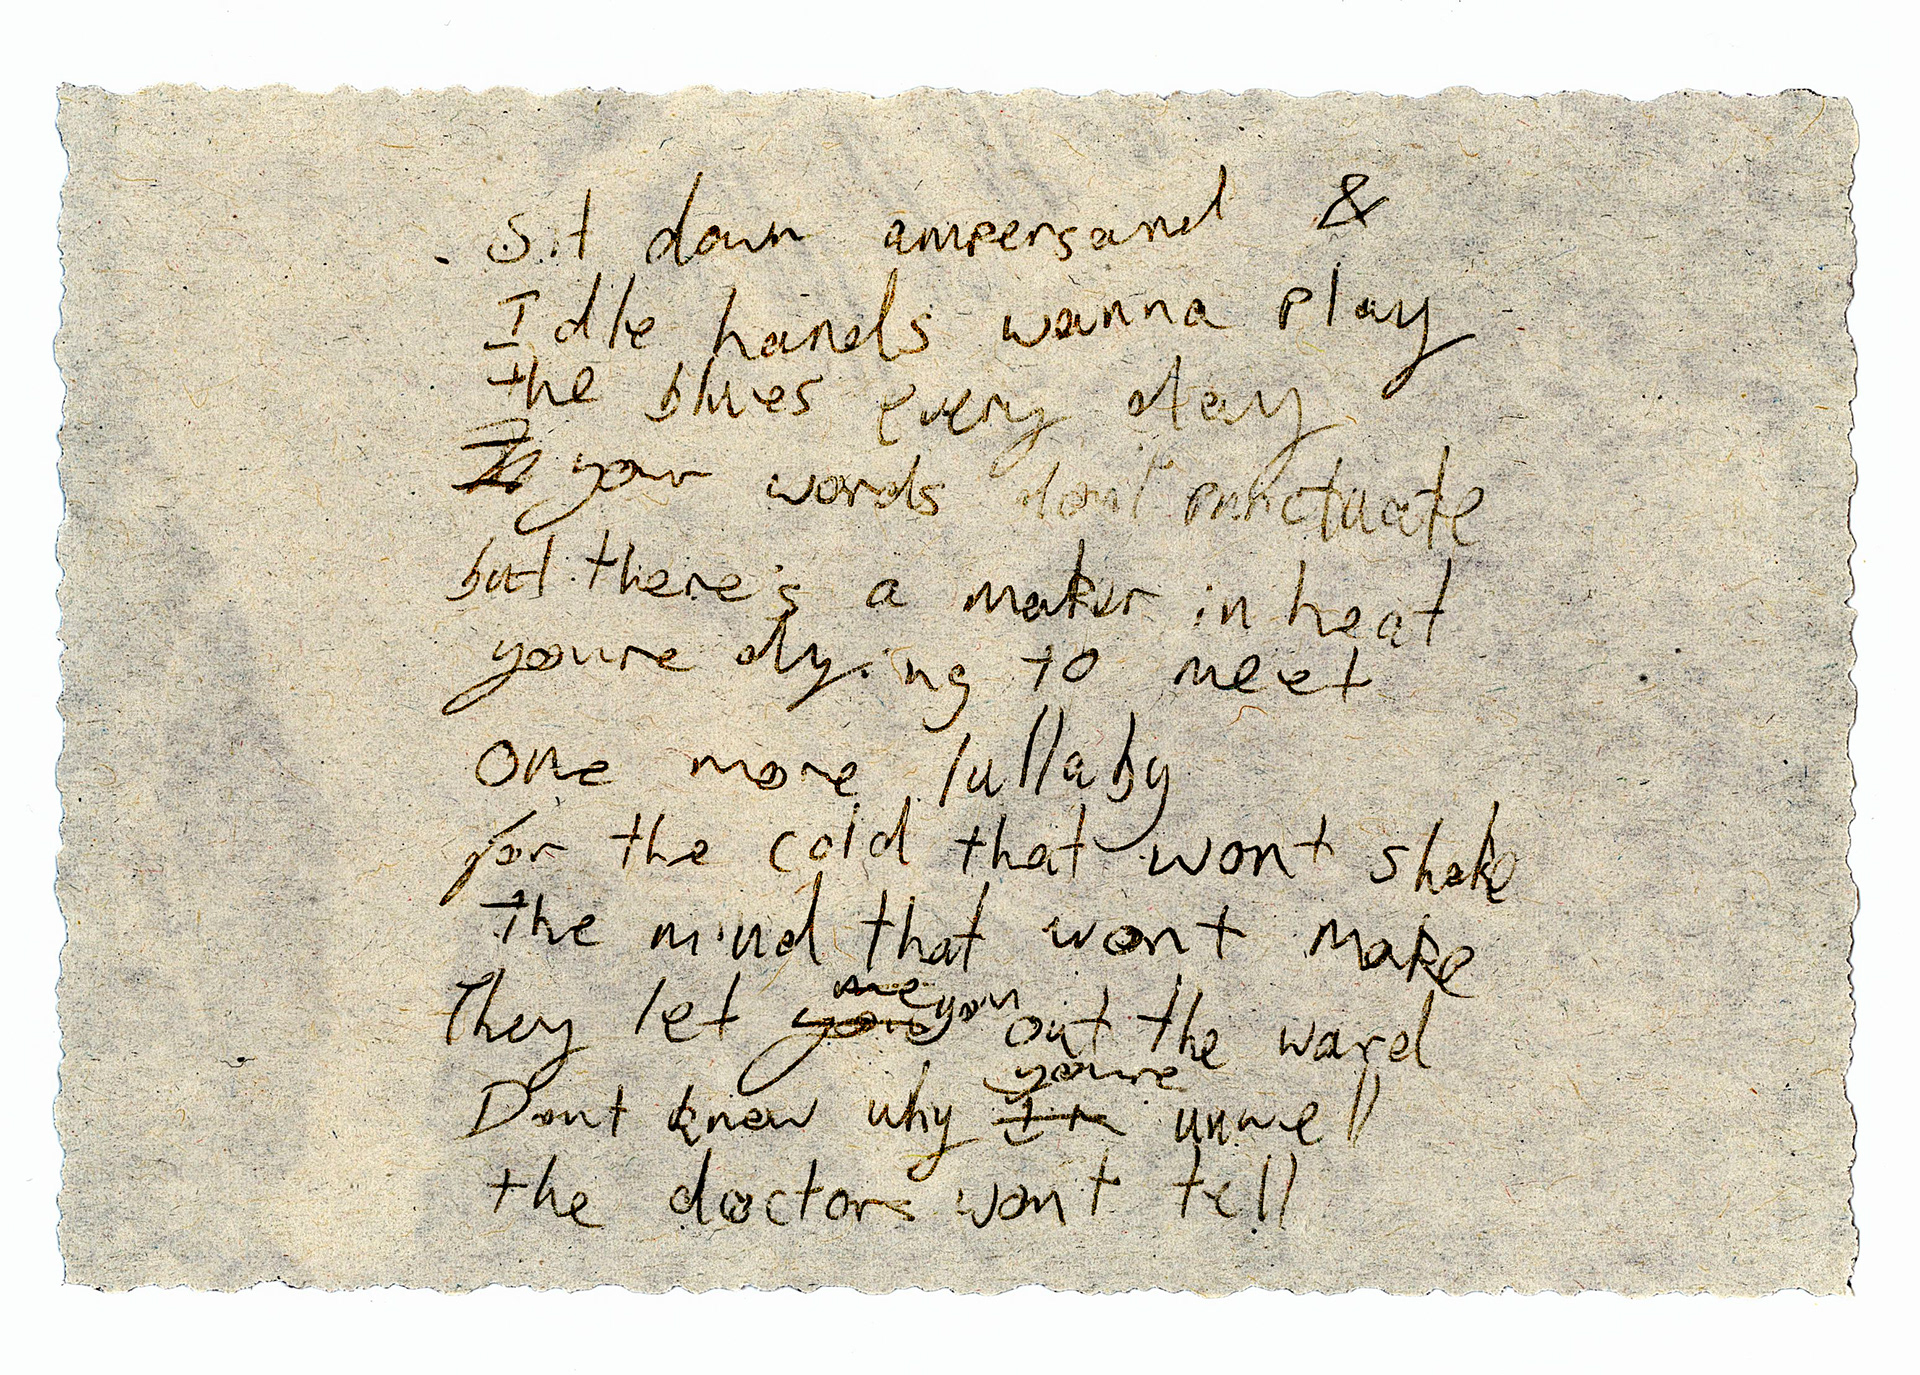 Sit down ampersand &
Idle hands wanna play
the blues every day
your words dont punctuate
but there's a maker in heat
youre dying to meet
One more lullaby
for the cold that wont shake
The mind that wont make
They let you out the ward
Dont know why youre unwell
the doctors wont tell